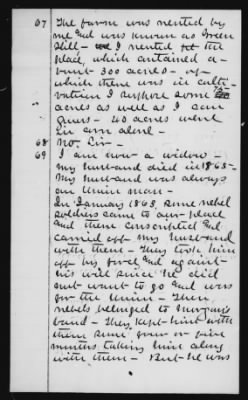 67 The farm was rented by
me and was known as Green
Hill - I rented the
place, which contained a-
bout 300 acres - of
which there was in culti-
vation I suppose some
acres as well as I can
guess - 40 acres went
in corn alone -
68 No, Sir -
69 I am now a widow -
my husband died in 1863 -
My husband was always
an Union man -
In January 1863, some rebel
soldiers came to our place
and them conscripted and
carried off my husband
with them - They took him
off by force and against
his will since he did
not want to go and was
for the Union - Them
rebels belonged to Morgan's
band - They kept him with
them some four or five
months, taking him along
with them - But he was